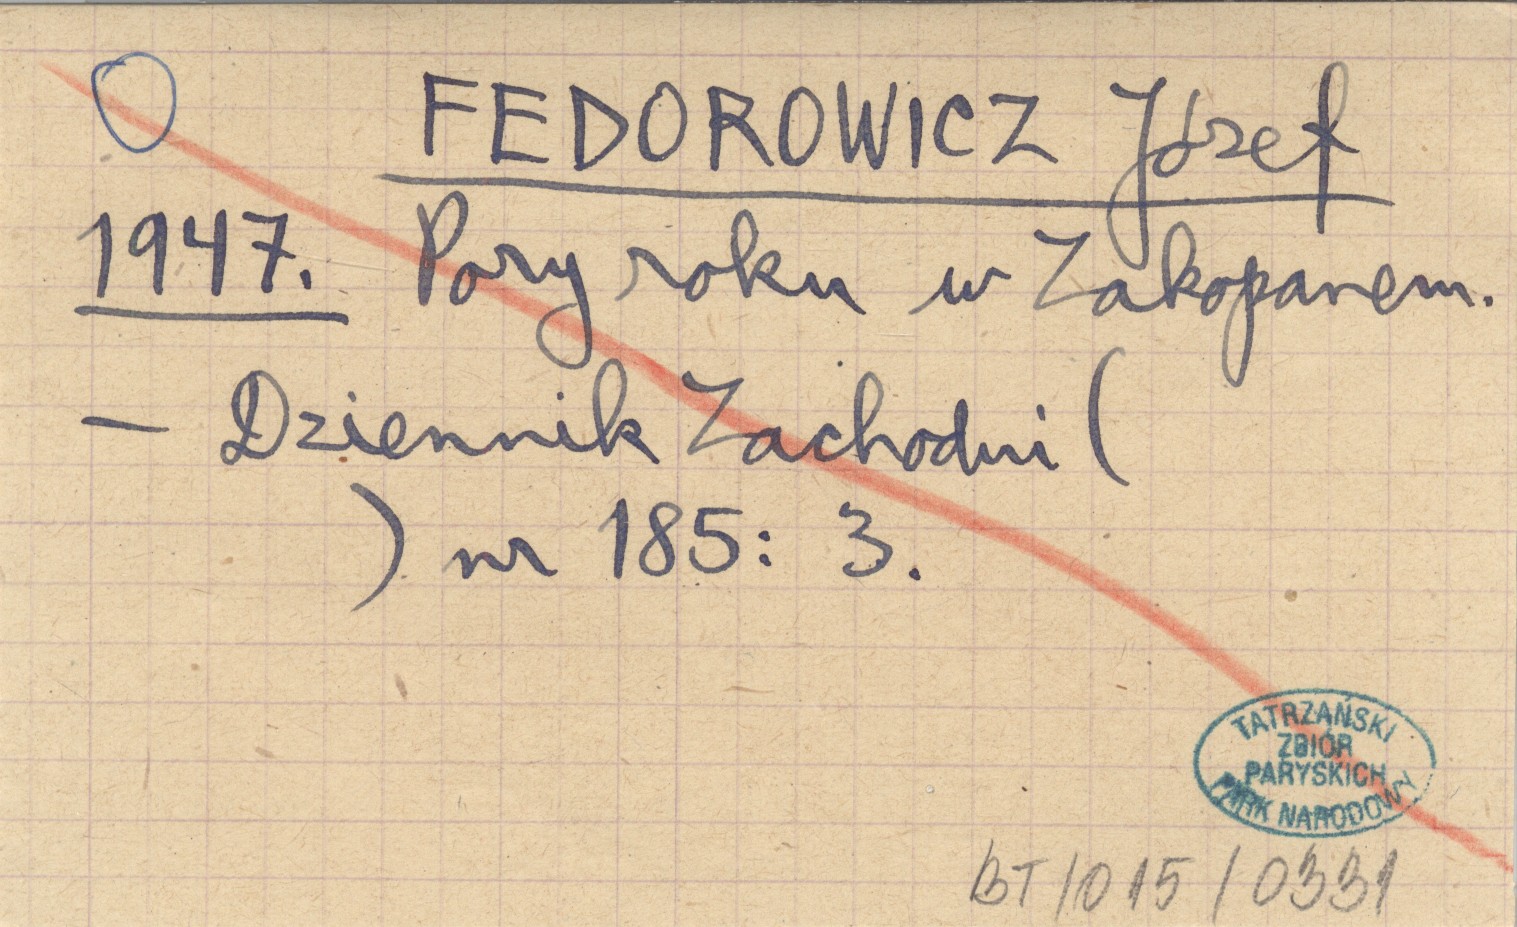 FEDOROWICZ Józef
1947. Pory roku w Zakopanem.
— Dziennik Zachodni (
) nr 185: 3.
TATRZAŃSKI
ZBIÓR
PARYSKICH
PARK NARODOWY
BT/015/0331